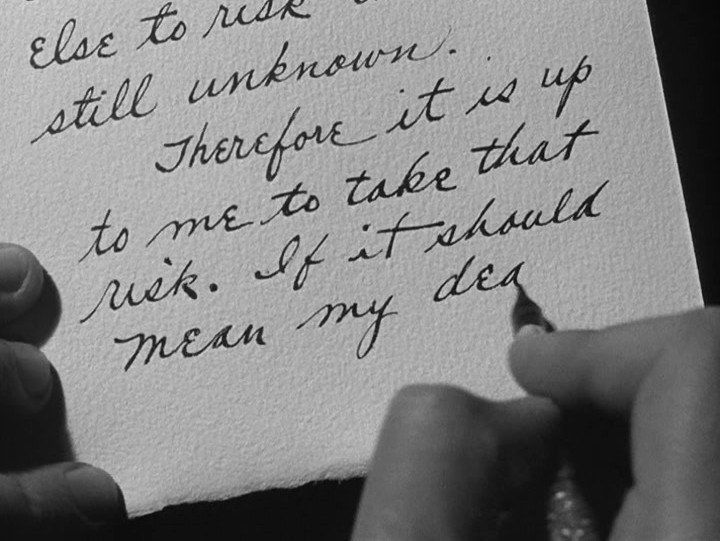 else to risk
still unknown.
Therefore it is up
to me to take that
risk. If it should
mean my dea